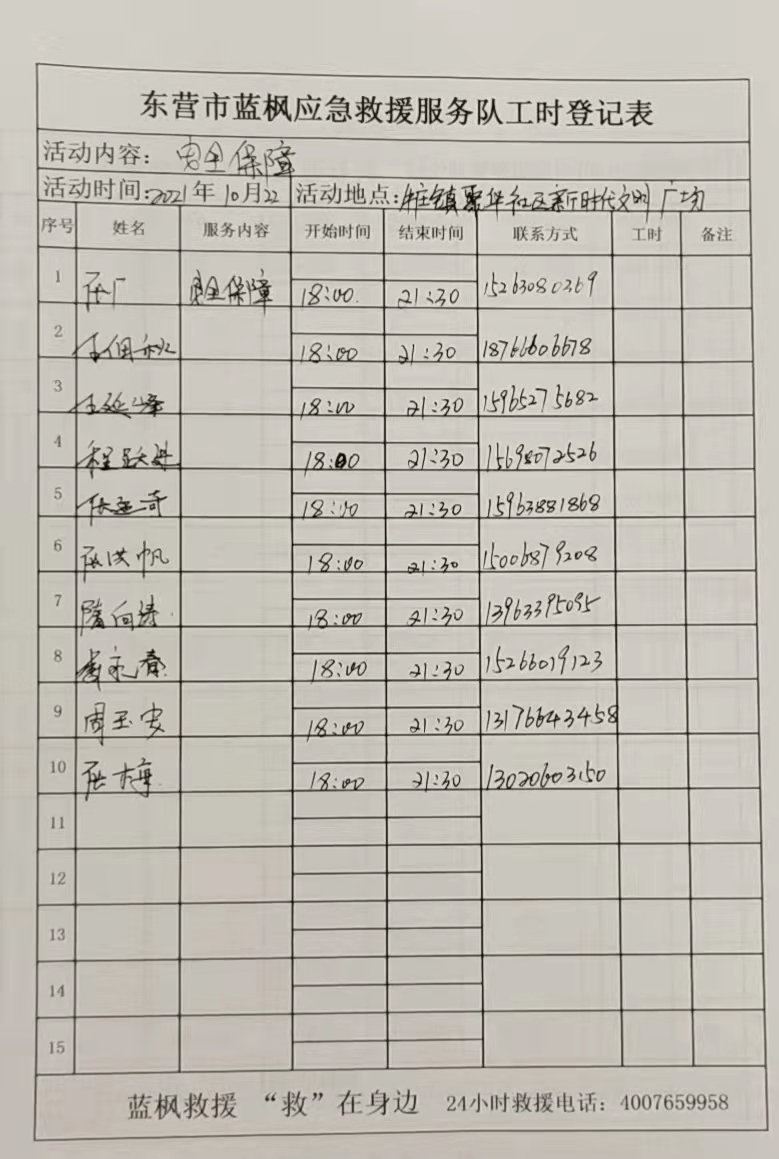 东营市蓝枫应急救援服务队工时登记表
活动内容：安全保障
活动时间：2021年10月22 活动地点：镇聚华社区新时代文明广场
序号 姓名 服务内容 开始时间 结束时间 联系方式 工时 备注
1 安全保障 18:00 21:30 15263080369
2 18:00 21:30 18766606678
3 王延峰 18:00 21:30 15965275682
4 程跃进 18:00 21:30 15698072526
5 18:00 21:30 15963881868
6 18:00 21:30 15006879208
7 隋向涛 18:00 21:30 13963395095
8 18:00 21:30 15266019123
9 周玉安 18:00 21:30 13176643458
10 18:00 21:30 13020603150
11
12
13
14
15
蓝枫救援 “救”在身边 24小时救援电话：4007659958